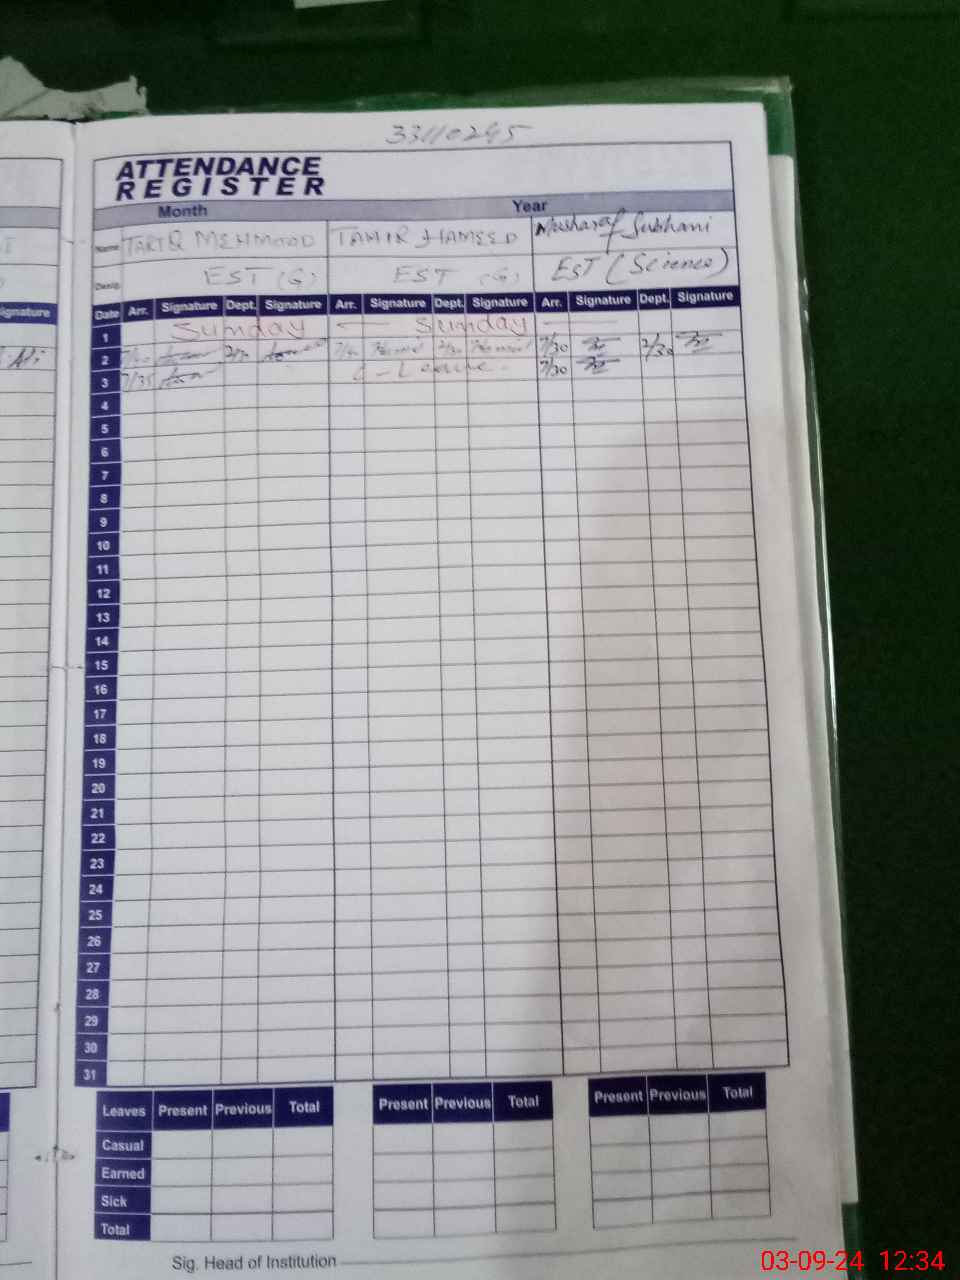 33110295
ATTENDANCE
REGISTER
Month Year
Name TARIQ MEHMOOD TAHIR HAMEED Musharaf Subhani
Desig. EST (G) EST (G) EST (Science)
Signature Date Arr. Signature Dept. Signature Arr. Signature Dept. Signature Arr. Signature Dept. Signature
1 Sunday Sunday
2 7/30 2/30 7/30 2/30
3 7/35 Leave 7/30
4
5
6
7
8
9
10
11
12
13
14
15
16
17
18
19
20
21
22
23
24
25
26
27
28
29
30
31
Leaves Present Previous Total Present Previous Total Present Previous Total
Casual
Earned
Sick
Total
Sig. Head of Institution
03-09-24 12:34